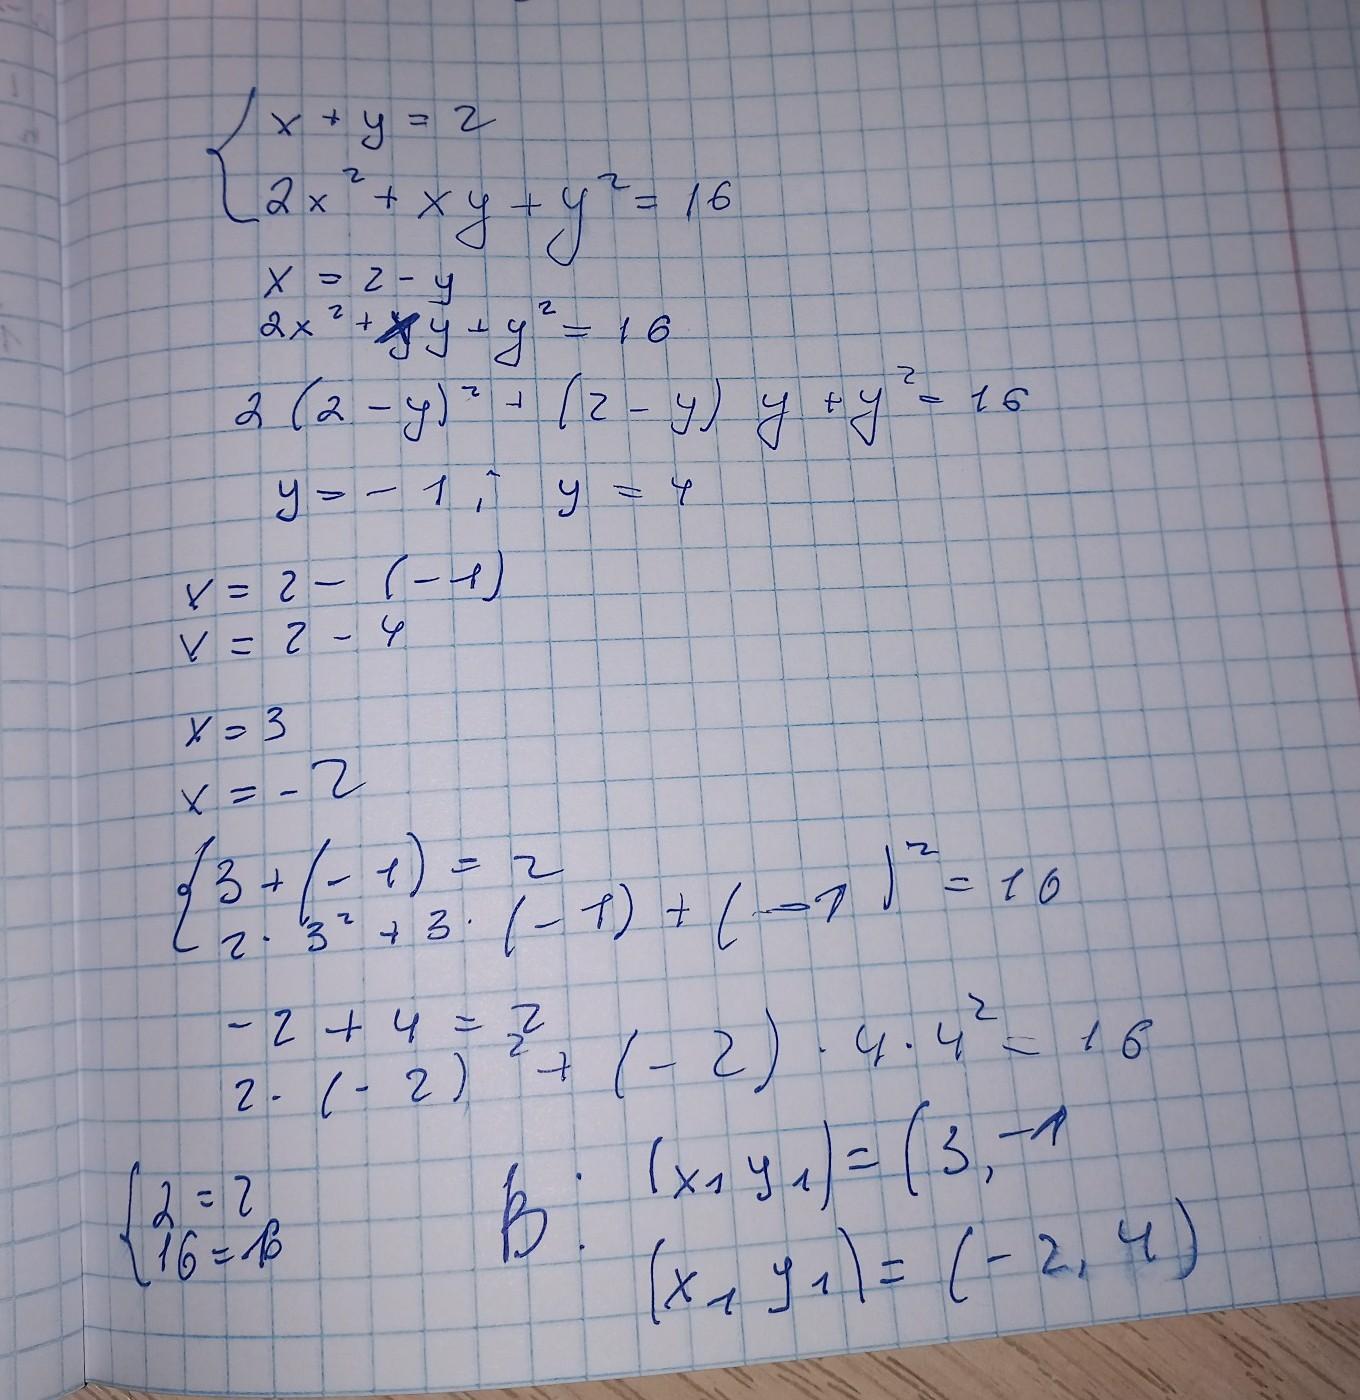 { x + y = 2
2x² + xy + y² = 16
x = 2 - y
2x² + xy + y² = 16
2 (2 - y)² + (2 - y) y + y² = 16
y = - 1 ; y = 4
x = 2 - (-1)
x = 2 - 4
x = 3
x = - 2
{ 3 + (- 1) = 2
2 · 3² + 3 · (- 1) + (-1)² = 16
- 2 + 4 = 2
2 · (- 2)² + (- 2) · 4 · 4² = 16
{ 2 = 2
16 = 16
В : (x₁ y₁) = (3, -1
(x₁ y₁) = (- 2, 4)